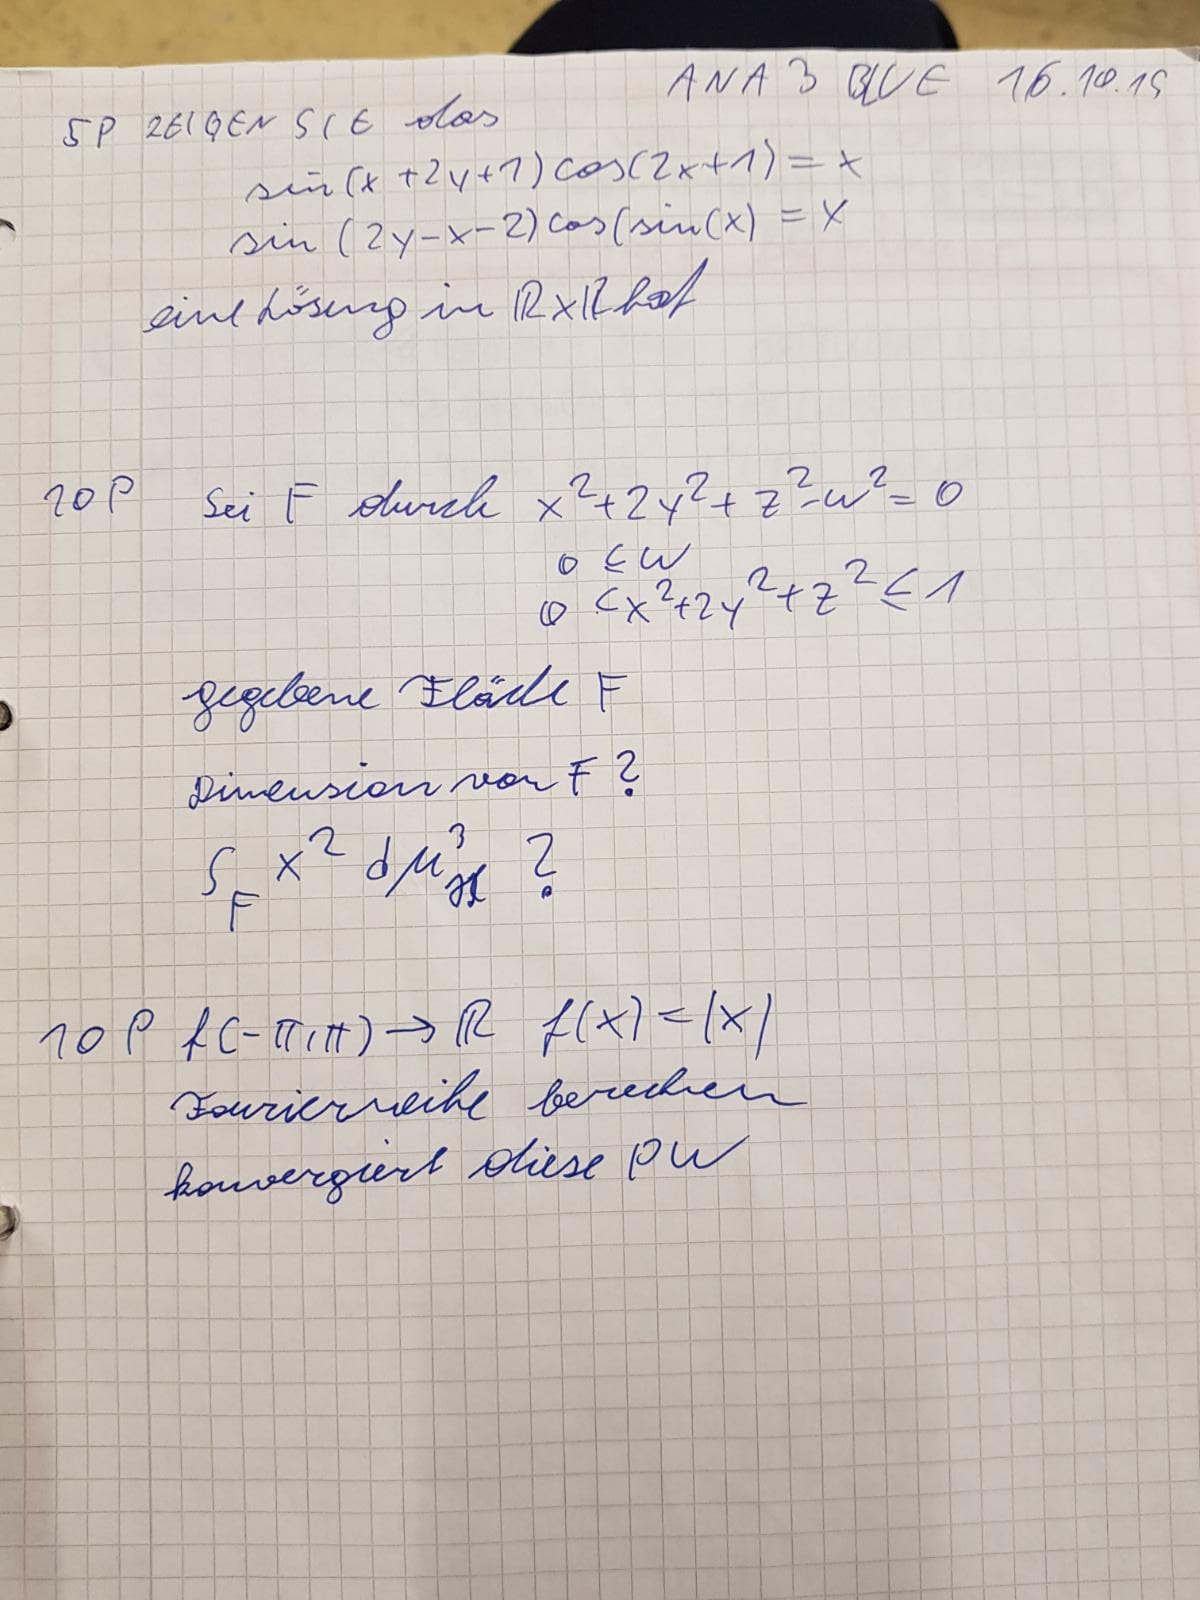 ANA 3 BLUE 16.10.19
5P ZEIGEN SIE das
sin(x+2y+1)cos(2x+1)=x
sin(2y-x-2)cos(sin(x) = x
eine Lösung in ℝxℝ hat
10P Sei F durch x²+2y²+z²-w²=0
0 ≤ w
0 ≤ x²+2y²+z² ≤ 1
gegebene Fläche F
Dimension von F?
∫_F x² dμ³_H ?
10P f(-π,π)→ℝ f(x)=|x|
Fourierreihe berechen
konvergiert diese PW